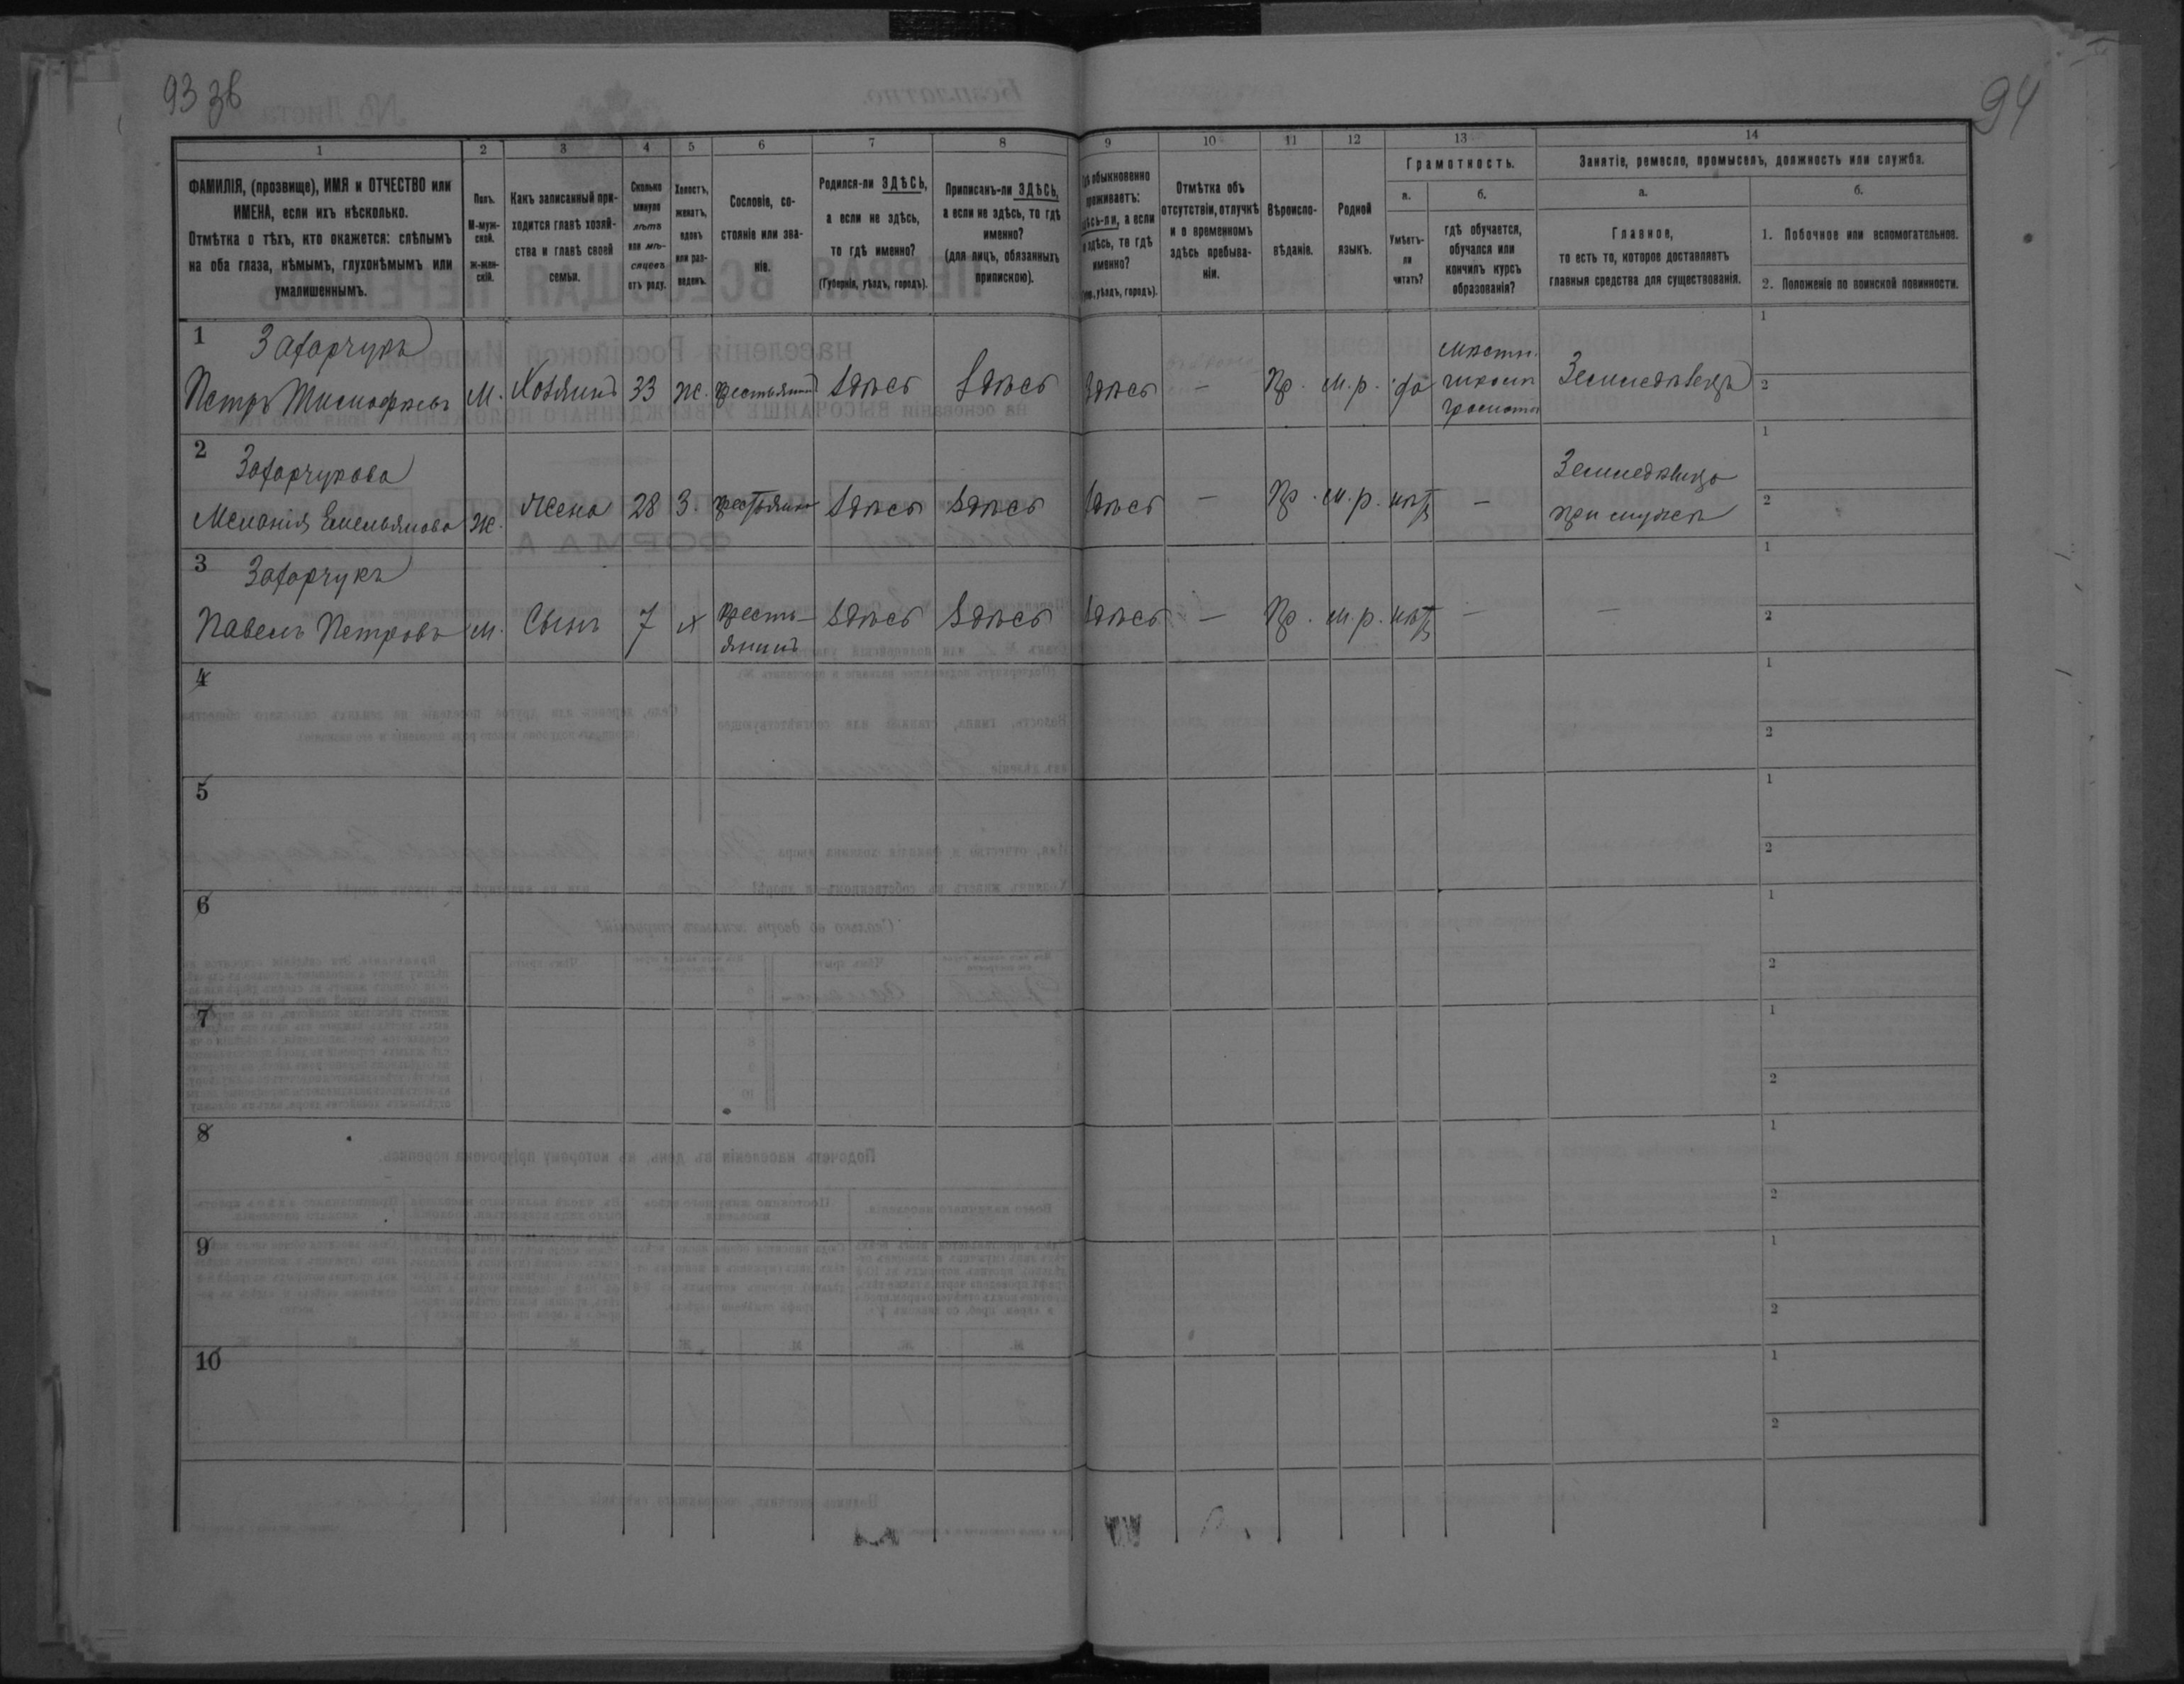 93 зв
94
1
2
3
4
5
6
7
8
9
10
11
12
13
14
ФАМИЛІЯ, (прозвище), ИМЯ и ОТЧЕСТВО или
ИМЕНА, если ихъ нѣсколько.
Отмѣтка о тѣхъ, кто окажется: слѣпымъ
на оба глаза, нѣмымъ, глухонѣмымъ или
умалишеннымъ.
Полъ.
М-муж-
ской.
ж-жен-
скій.
Какъ записанный при-
ходится главѣ хозяй-
ства и главѣ своей
семьи.
Сколько
минуло
лѣтъ
или мѣ-
сяцевъ
отъ роду.
Холостъ,
женатъ,
вдовъ
или раз-
веденъ.
Сословіе, со-
стояніе или зва-
ніе.
Родился-ли ЗДѢСЬ,
а если не здѣсь,
то гдѣ именно?
(Губернія, уѣздъ, городъ).
Приписанъ-ли ЗДѢСЬ,
а если не здѣсь, то гдѣ
именно?
(для лицъ, обязанныхъ
припискою).
обыкновенно
проживаетъ:
здѣсь-ли, а если
не здѣсь, то гдѣ
именно?
уѣздъ, городъ).
Отмѣтка объ
отсутствіи, отлучкѣ
и о временномъ
здѣсь пребыва-
ніи.
Вѣроиспо-
вѣданіе.
Родной
языкъ.
Грамотность.
а.
Умѣетъ-
ли
читать?
б.
гдѣ обучается,
обучался или
кончилъ курсъ
образованія?
Занятіе, ремесло, промыселъ, должность или служба.
а.
Главное,
то есть то, которое доставляетъ
главныя средства для существованія.
б.
1. Побочное или вспомогательное.
2. Положеніе по воинской повинности.
1 Захарчукъ
Петръ Тимофѣевъ М. Хозяинъ 33 Ж. крестьянинъ Здѣсь Здѣсь Здѣсь — Пр. м.р. да школѣ грамоты Земледѣлецъ 1 2
2 Захарчукова
Меланія Емельянова Ж. Жена 28 З. крестьянка Здѣсь Здѣсь Здѣсь — Пр. м.р. нѣтъ — Земледѣлица при мужѣ 1 2
3 Захарчукъ
Павелъ Петровъ М. Сынъ 7 Х кресть-
янинъ Здѣсь Здѣсь Здѣсь — Пр. м.р. нѣтъ — — 1 2
4 1 2
5 1 2
6 1 2
7 1 2
8 1 2
9 1 2
10 1 2